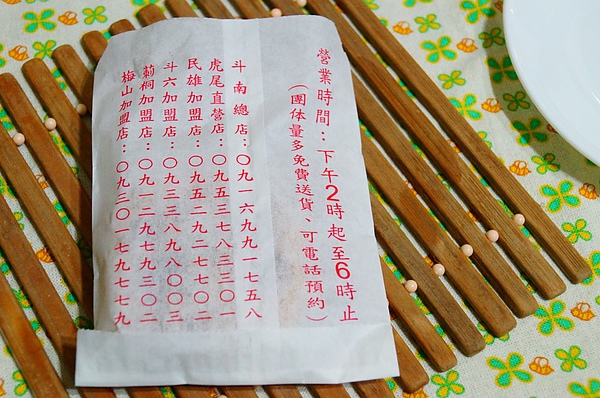 營業時間：下午2時起至6時止
（團体量多免費送貨、可電話預約）
斗南總店：〇九一六九九一七五八
虎尾直營店：〇九五三七八三三〇一
民雄加盟店：〇九五二九二七七〇二
斗六加盟店：〇九三三八九八〇〇三
莿桐加盟店：〇九一二九七九三〇二
梅山加盟店：〇九三〇一七七七九